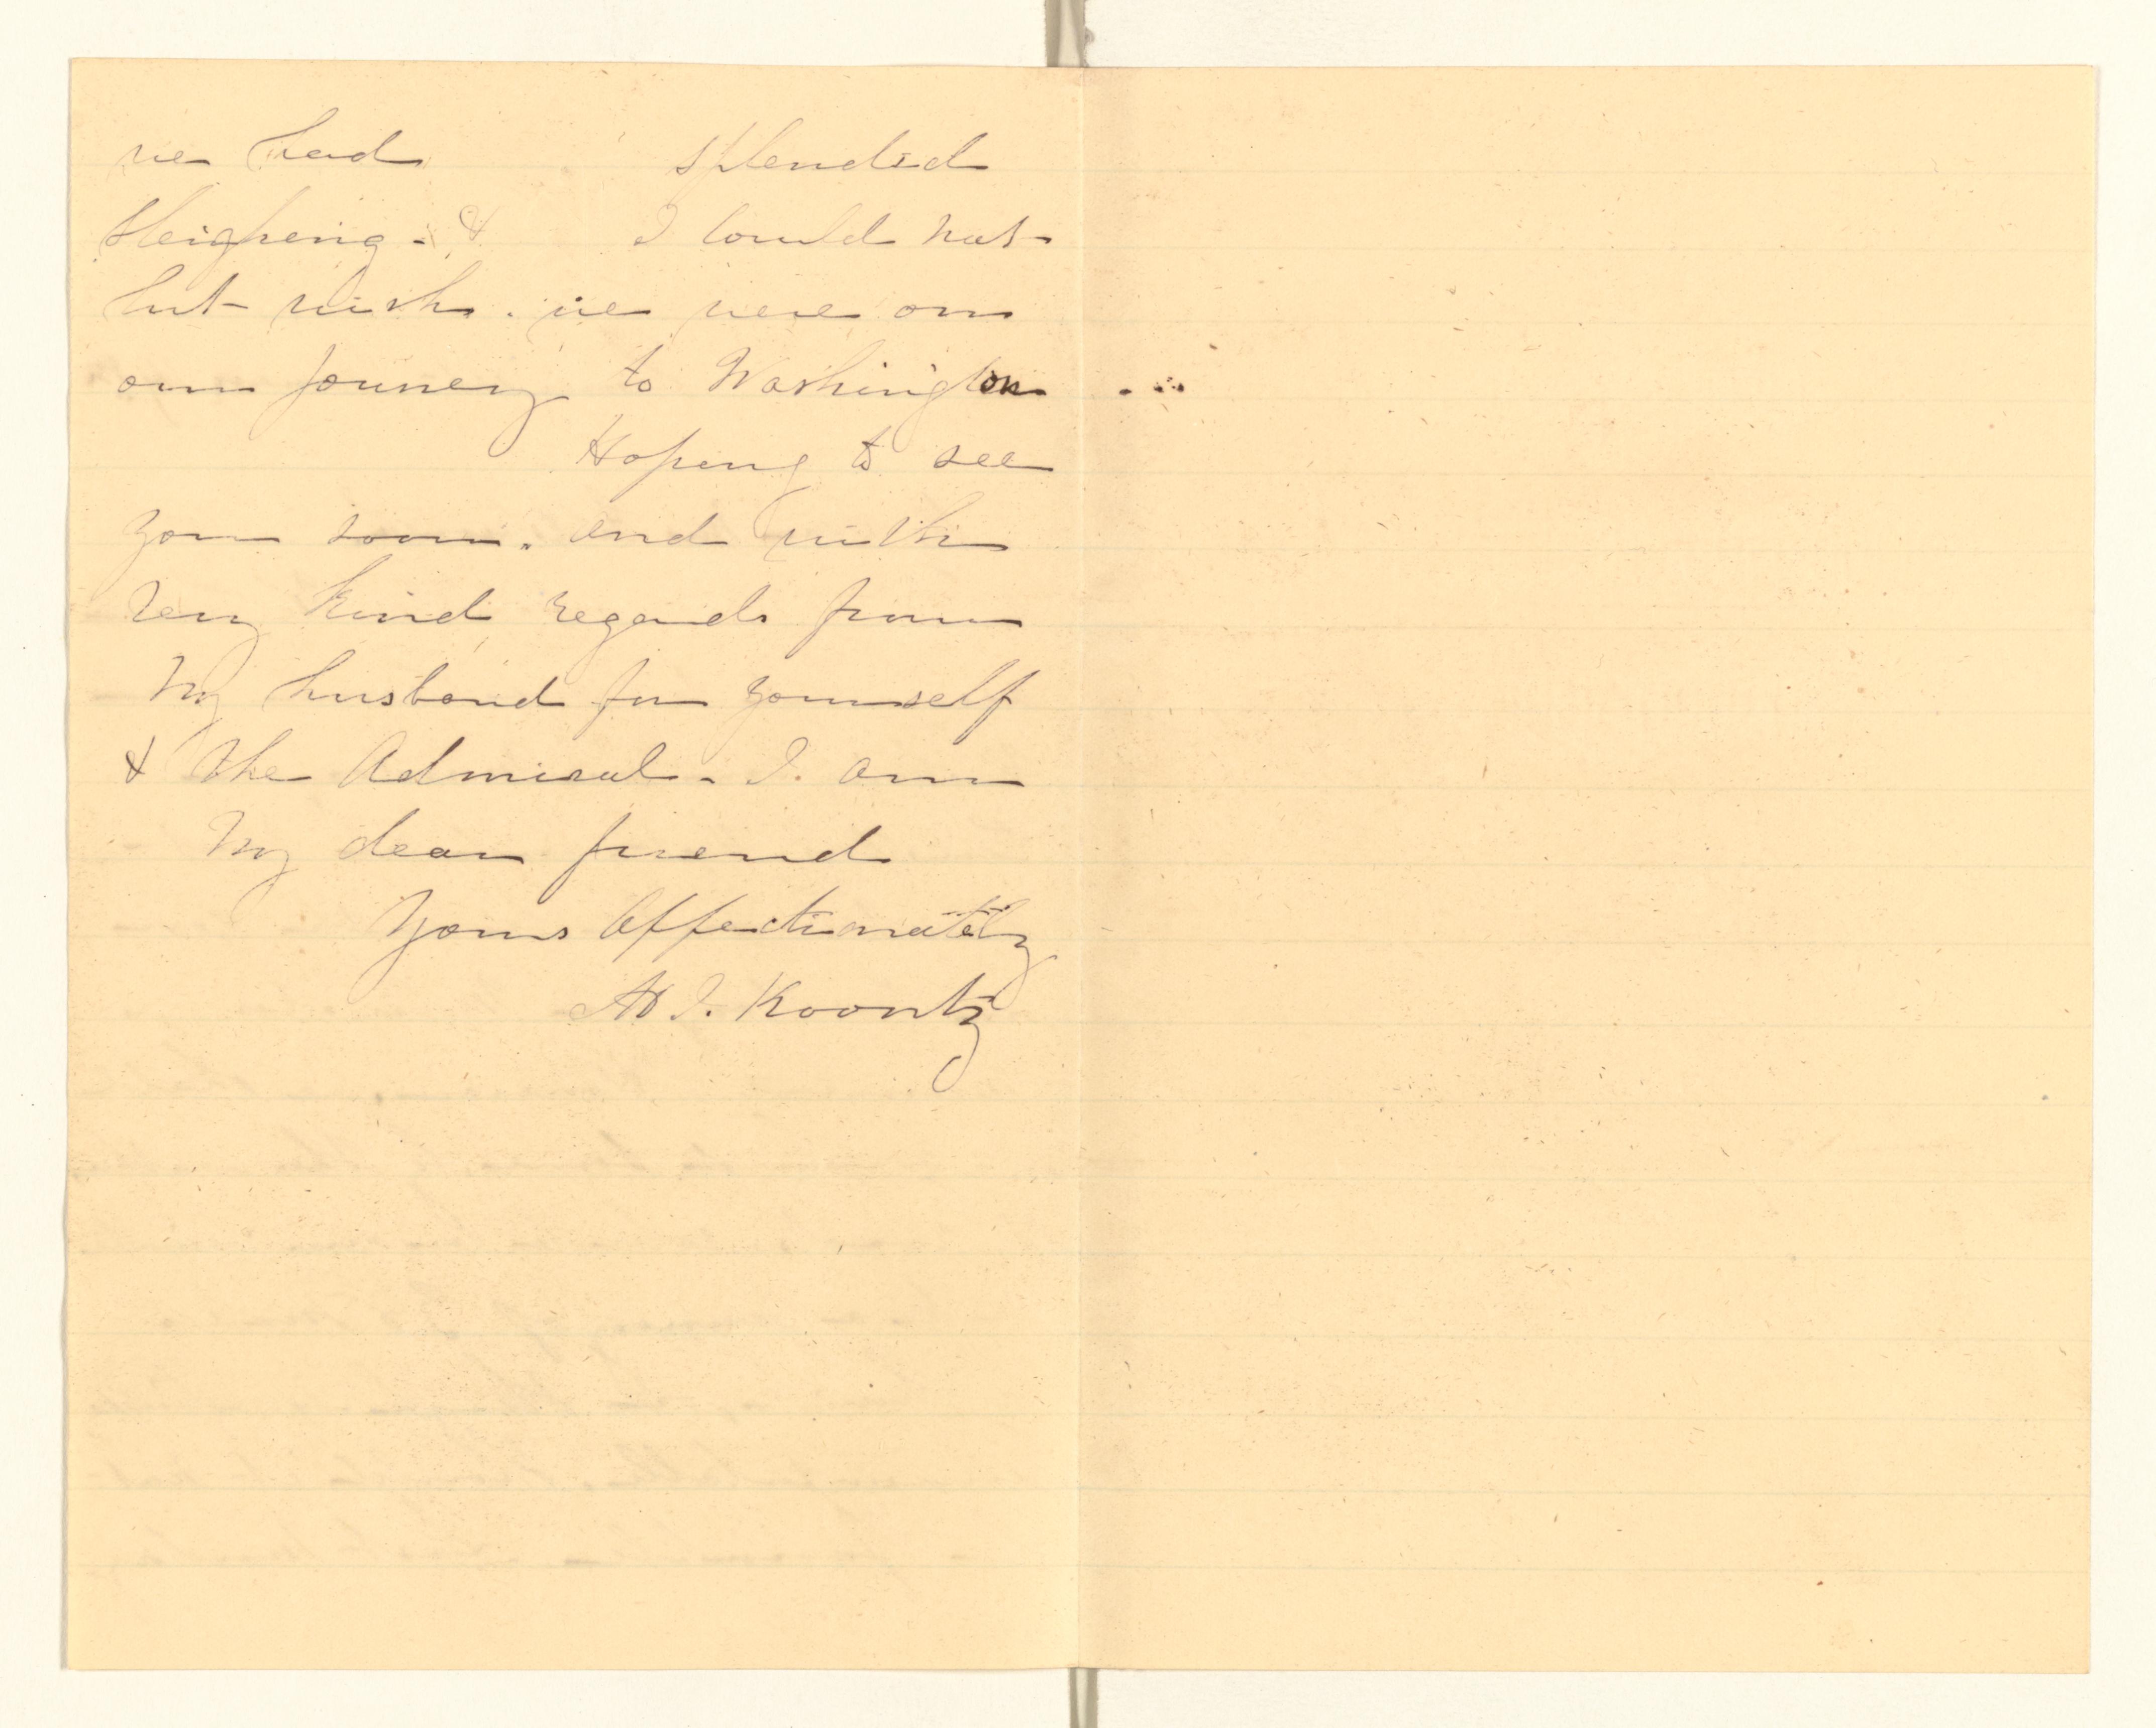 we had splendid
sleighing - & I could not
but wish. we were on
our journey to Washington
Hoping to see
you soon. and with
very kind regards from
my husband for yourself
& the Admiral. I. am
My dear friend
Yours Affectionately
H I. Koontz